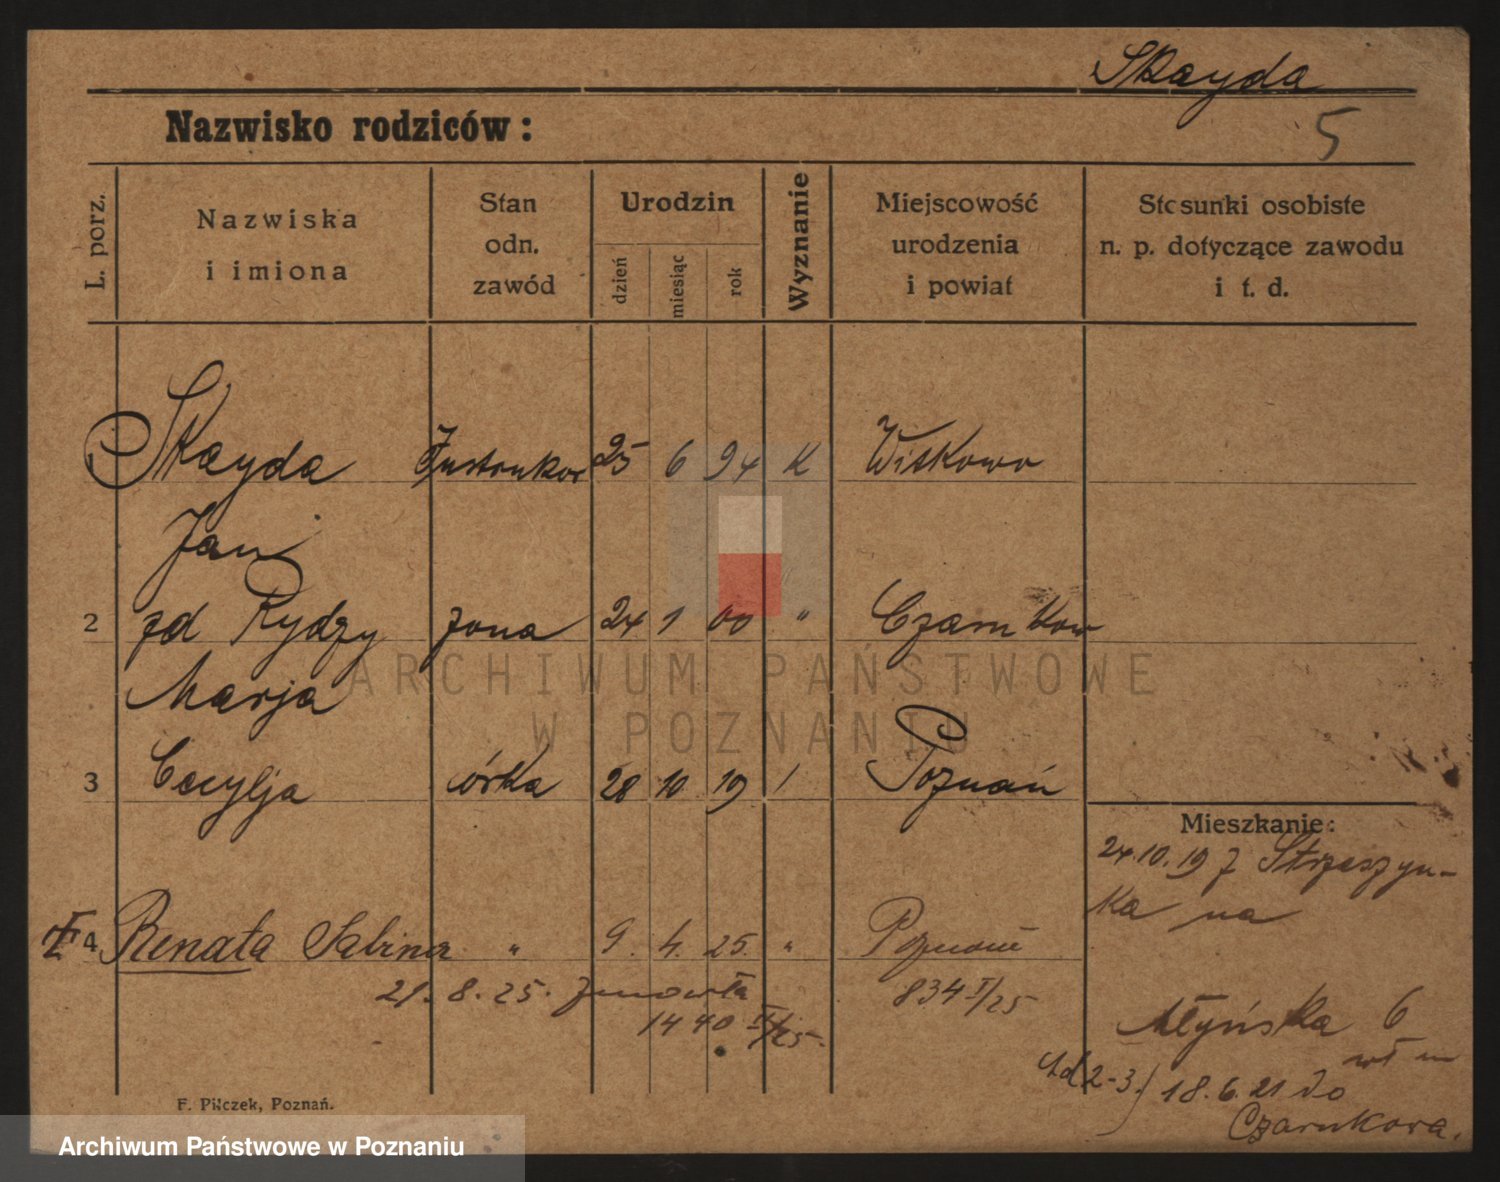 Skayda
Nazwisko rodziców:
5
L. porz.
Nazwiska
i imiona
Stan
odn.
zawód
Urodzin
dzień
miesiąc
rok
Wyznanie
Miejscowość
urodzenia
i powiat
Stosunki osobiste
n. p. dotyczące zawodu
i t. d.
Skayda 25 6 94 K Witkowo
Jan
2 zd Rydzy żona 24 1 00 " Czarnkow
Marja
3 Cecylja córka 28 10 19 Poznań
Mieszkanie:
24.10.19 z Strzeszyn-
ka na
4 Renata Sabina " 9. 4. 25. " Poznań
21. 8. 25. zmarła 834 I/25
1440 II/25.
Młyńska 6
2-3.) 18.6.21 do
Czarnkowa.
F. Pilczek, Poznań.
ARCHIWUM PAŃSTWOWE
W POZNANIU
Archiwum Państwowe w Poznaniu